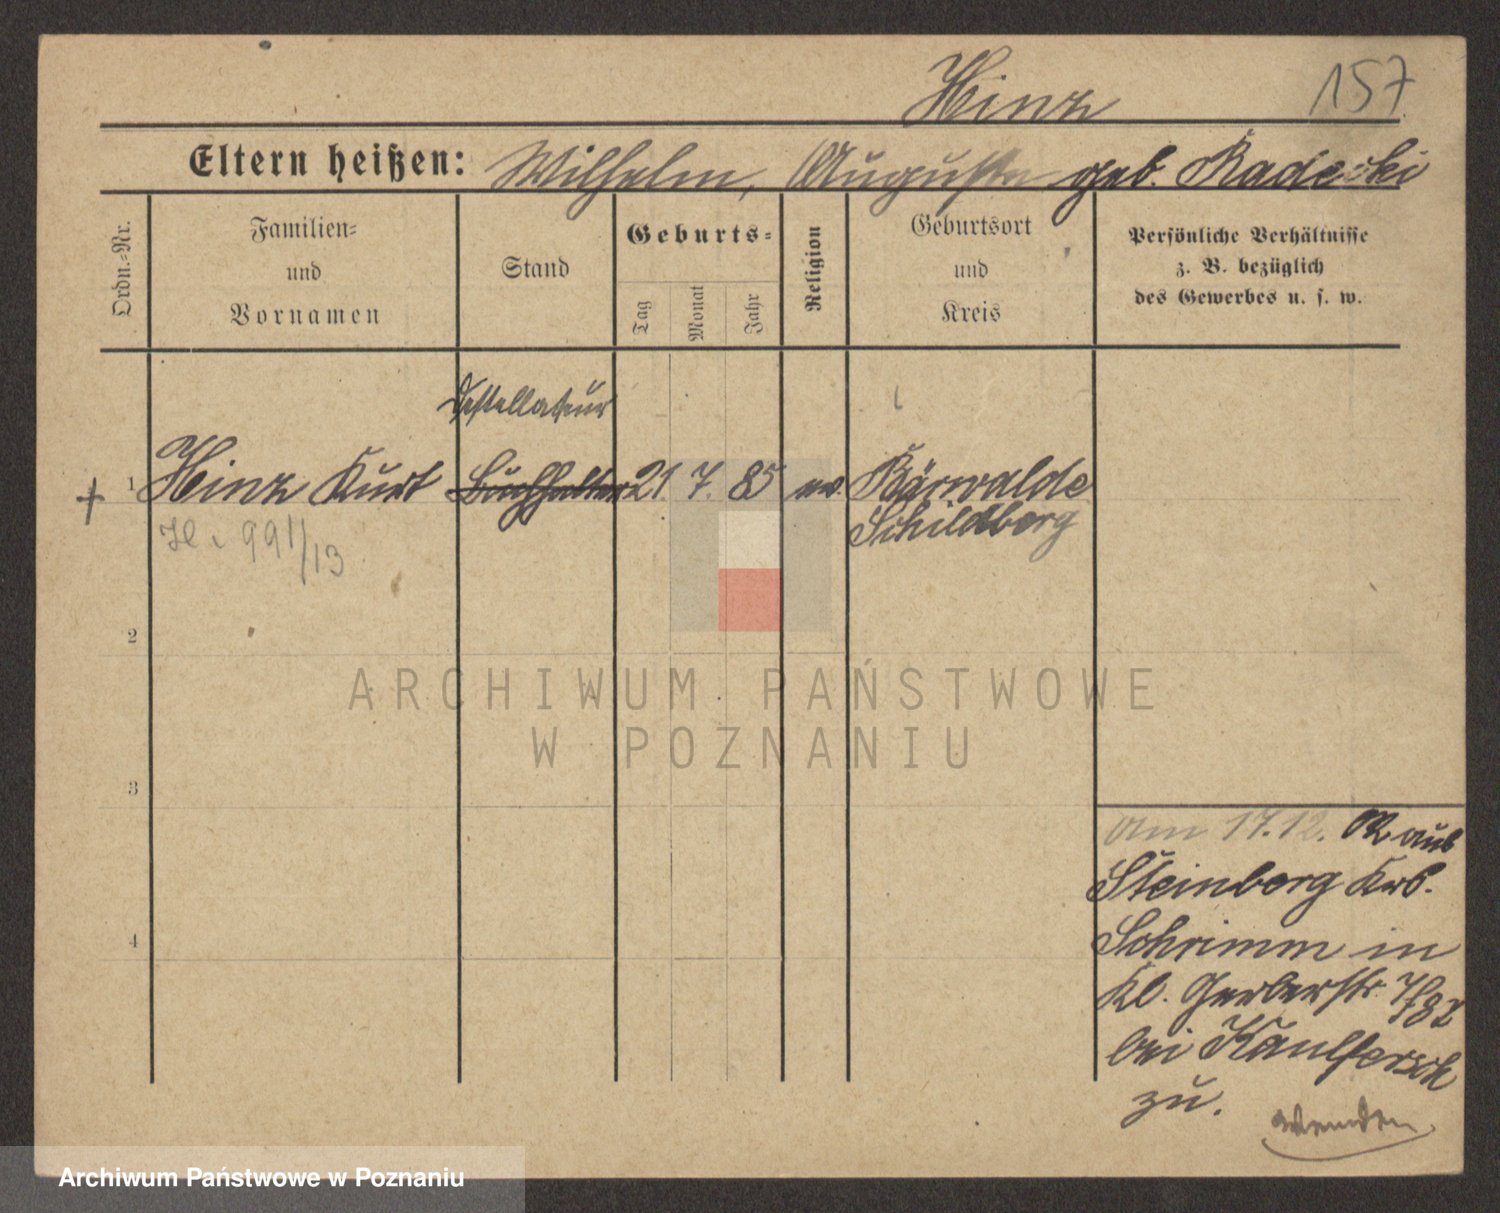 Hinz 157
Eltern heißen: Wilhelm, Auguste geb. Radecki
Ordn.-Nr.
Familien-
und
Vornamen
Stand
Geburts-
Tag
Monat
Jahr
Religion
Geburtsort
und
Kreis
Persönliche Verhältnisse
z. B. bezüglich
des Gewerbes u. s. w.
Destellateur
1 Hinz Kurt Buchhalter 21. 7. 85 ev. Bärwalde
Schildberg
991/13
2
3
4
ARCHIWUM PAŃSTWOWE
W POZNANIU
am 17.12. 02 aus
Steinberg Krs.
Schrimm in
Kl. Gerberstr.
bei Kaulfersch
zu.
wenden
Archiwum Państwowe w Poznaniu